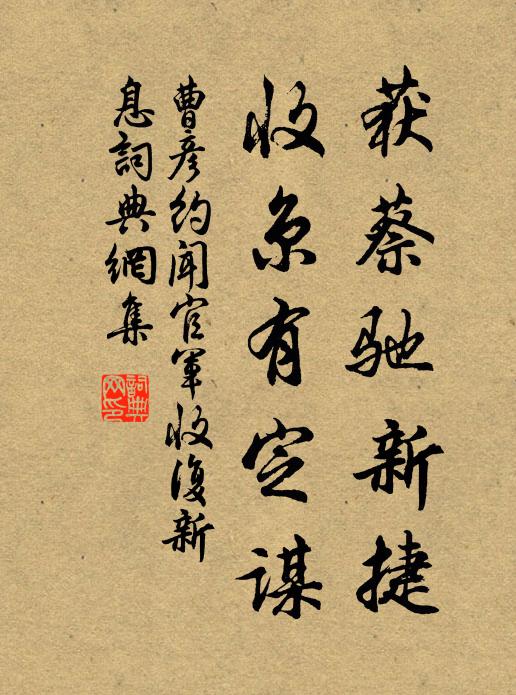 获蔡驰新捷
收京有定谋
曹彦约闻官军收复新
息詞典網集
詞典網印